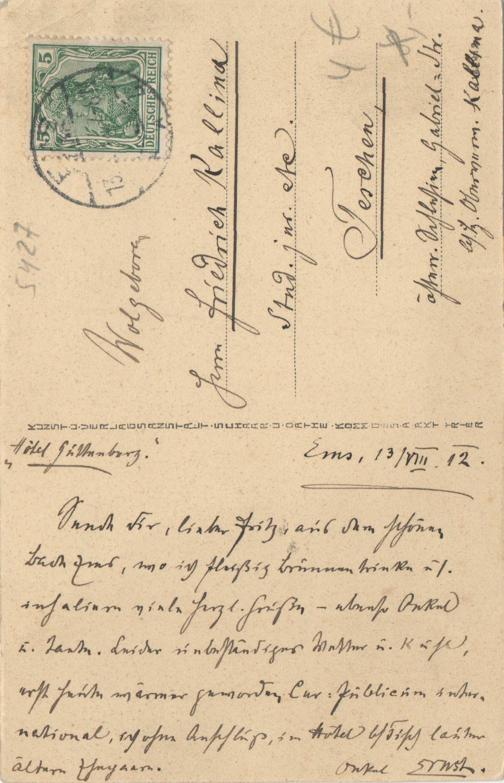 5
DEUTSCHES REICH
5427
Wolgeboren
Herrn Friedrich Kallina
Stud. jur. etc.
Teschen,
österr. Schlesien, Gabriel-Str.
KUNST- U. VERLAGSANSTALT SCHAAR U. DATHE KOMM.-GES. A. AKT. TRIER
"Hôtel Guttenberg."
Ems, 13/VIII. 12.
Sende Dir, lieber Fritz, aus dem schönen
Bade Ems, wo ich fleißig Brunnen trinke u.
inhaliere viele herzl. Grüße – ebenso Onkel
u. Tante. Leider unbeständiges Wetter u. kühl,
erst heute wärmer geworden, Cur-Publicum inter-
national, ohne Anschluß, im Hôtel lauter
ältere Ehepaare. Onkel Ernst.